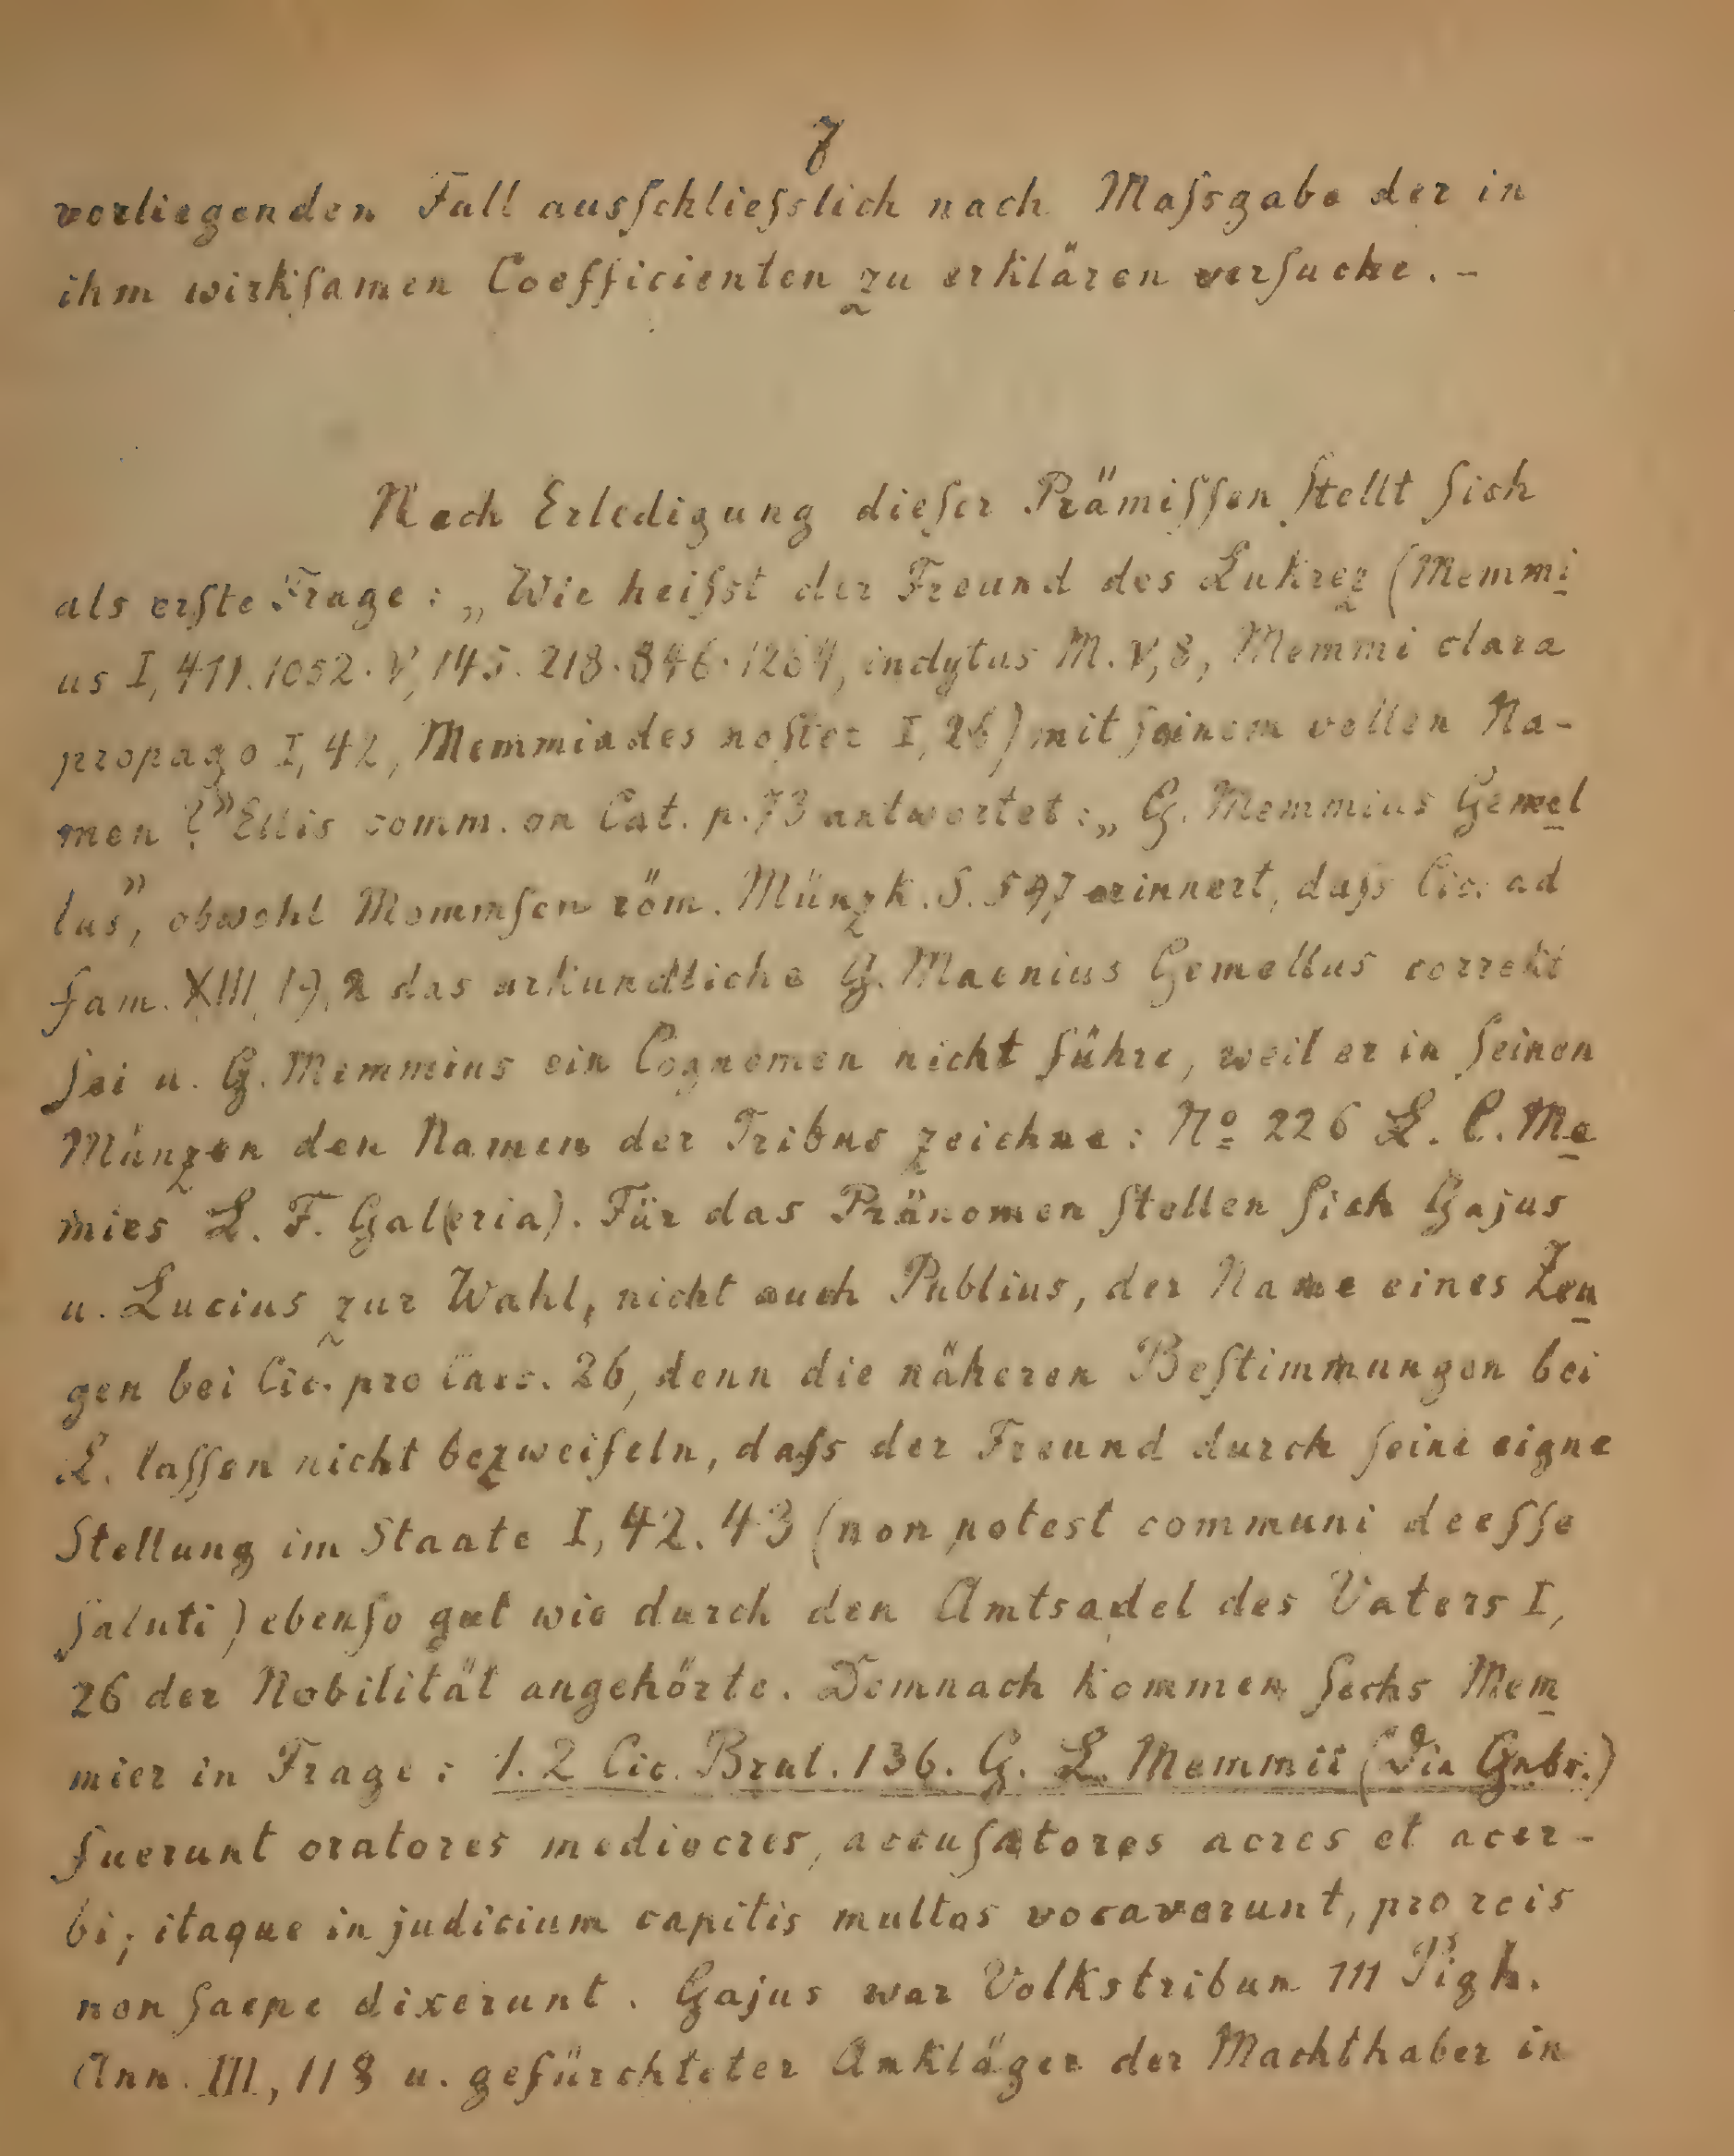 7
vorliegenden Fall ausſchlieſslich nach Maſsgabe der in
ihm wirkſamen Coefficienten zu erklären verſuche. -
Nach Erledigung dieſer Prämiſſen ſtellt ſich
als erſte Frage: „Wie heiſst der Freund des Lukrez (Memmi
us I, 411. 1052. V, 145. 218. 846. 1264, indytus M. V, 8, Memmi clara
propago I, 42, Memmiades noſter I, 26) mit ſeinem vollen Na-
men?” Ellis comm. on Cat. p. 73 antwortet: „G. Memmius Gemel
lus”, obwohl Mommſen röm. Münzk. S. 597 erinnert, daſs Cic. ad
fam. XIII, 19, 2 das urkundliche G. Maenius Gemellus correkt
ſei u. G. Memmius ein Cognomen nicht führe, weil er in ſeinen
Münzen den Namen der Tribus zeichne: No 226 L. C. Me
mies L. F. Gal(eria). Für das Pränomen ſtellen ſich Gajus
u. Lucius zur Wahl, nicht auch Publius, der Name eines Zeu
gen bei Cic. pro Caec. 26, denn die näheren Beſtimmungen bei
L. laſſen nicht bezweifeln, daſs der Freund durch ſeine eigne
Stellung im Staate I, 42. 43 (non potest communi deeſſe
ſaluti) ebenſo gut wie durch den Amtsadel des Vaters I,
26 der Nobilität angehörte. Demnach kommen ſechs Mem
mier in Frage: 1. 2 Cic. Brut. 136. G. L. Memmii (die Gebr.)
fuerunt oratores mediocres, accuſatores acres et acer-
bi; itaque in judicium capitis multos vocaverunt, pro reis
non ſaepe dixerunt. Gajus war Volkstribun 111 Pigh.
Ann. III, 118 u. gefürchteter Ankläger der Machthaber in